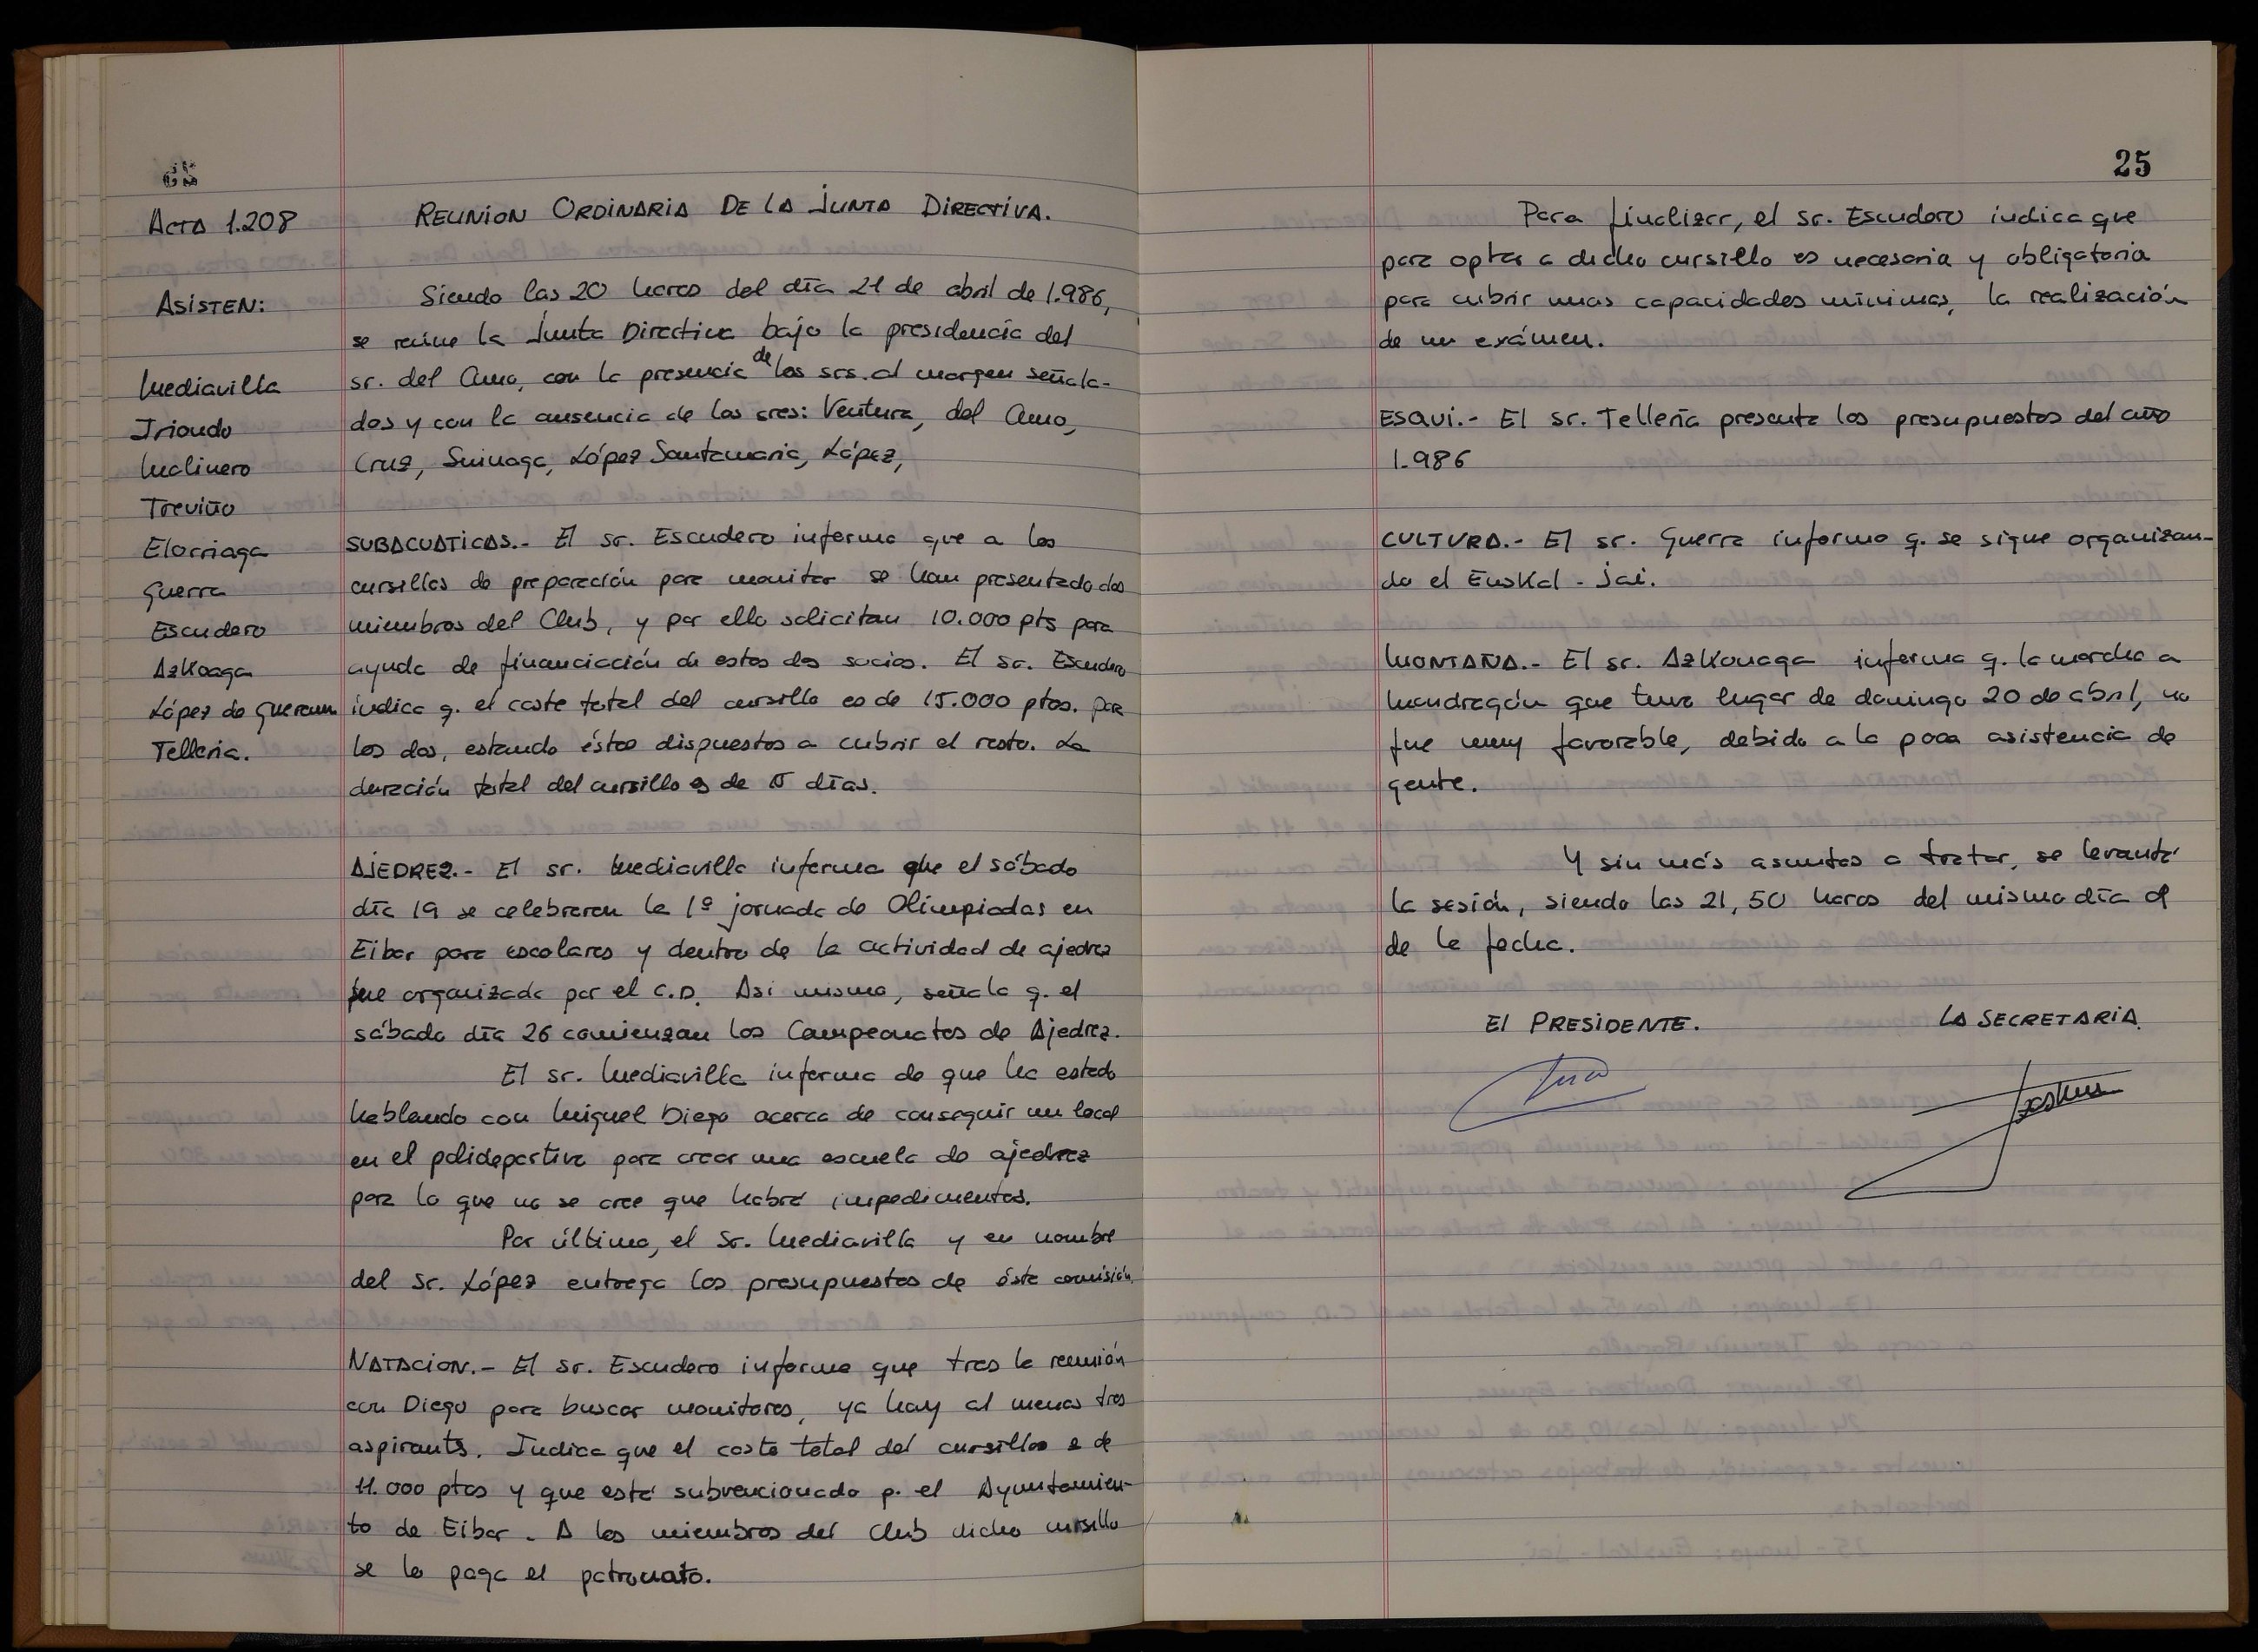 Acta 1.208
REUNION ORDINARIA DE LA JUNTA DIRECTIVA.
ASISTEN:
Mediavilla
Iriondo
Molinero
Treviño
Elorriaga
Guerra
Escudero
Azkoaga
López de Guereñu
Telleria.
Siendo las 20 horas del día 21 de abril de 1.986,
se reúne la Junta Directiva bajo la presidencia del
sr. del Amo, con la presencia de los srs. al margen señala-
dos y con la ausencia de los sres: Ventura, del Amo,
Cruz, Suinaga, López Santamaria, López,
SUBACUATICAS.- El sr. Escudero informa que a los
cursillos de preparación para monitor se han presentado dos
miembros del Club, y por ello solicitan 10.000 pts para
ayuda de financiación de estos dos socios. El sr. Escudero
indica q. el coste total del cursillo es de 15.000 ptas. por
los dos, estando éstos dispuestos a cubrir el resto. La
duración total del cursillo es de 15 días.
AJEDREZ.- El sr. Mediavilla informa que el sábado
día 19 se celebraron la 1ª jornada de Olimpiadas en
Eibar para escolares y dentro de la actividad de ajedrez
fue organizada por el C.D. Asi mismo, señala q. el
sábado día 26 comienzan los Campeonatos de Ajedrez.
El sr. Mediavilla informa de que ha estado
hablando con Miguel Diego acerca de conseguir un local
en el polideportivo para crear una escuela de ajedrez
para lo que no se cree que habrá impedimentos.
Por último, el Sr. Mediavilla y en nombre
del Sr. López entrega los presupuestos de ésta comisión.
NATACION.- El sr. Escudero informa que tras la reunión
con Diego para buscar monitores, ya hay al menos tres
aspirants. Indica que el coste total del cursillos e de
11.000 ptas y que está subvencionado p. el Ayuntamien-
to de Eibar. A los miembros del Club dicho cursillo
se lo paga el patronato.
25
Para finalizar, el sr. Escudero indica que
para optar a dicho cursillo es necesaria y obligatoria
para cubrir unas capacidades mínimas, la realización
de un exámen.
ESQUI.- El sr. Tellería presenta los presupuestos del año
1.986
CULTURA.- El sr. Guerra informa q. se sigue organizan-
do el Euskal - Jai.
MONTAÑA.- El sr. Azkonaga informa q. la marcha a
Mondragón que tuvo lugar de domingo 20 de abril, no
fue muy favorable, debido a la poca asistencia de
gente.
Y sin más asuntos a tratar, se levantó
la sesión, siendo las 21,50 horas del mismo día
de la fecha.
El PRESIDENTE.
LA SECRETARIA.